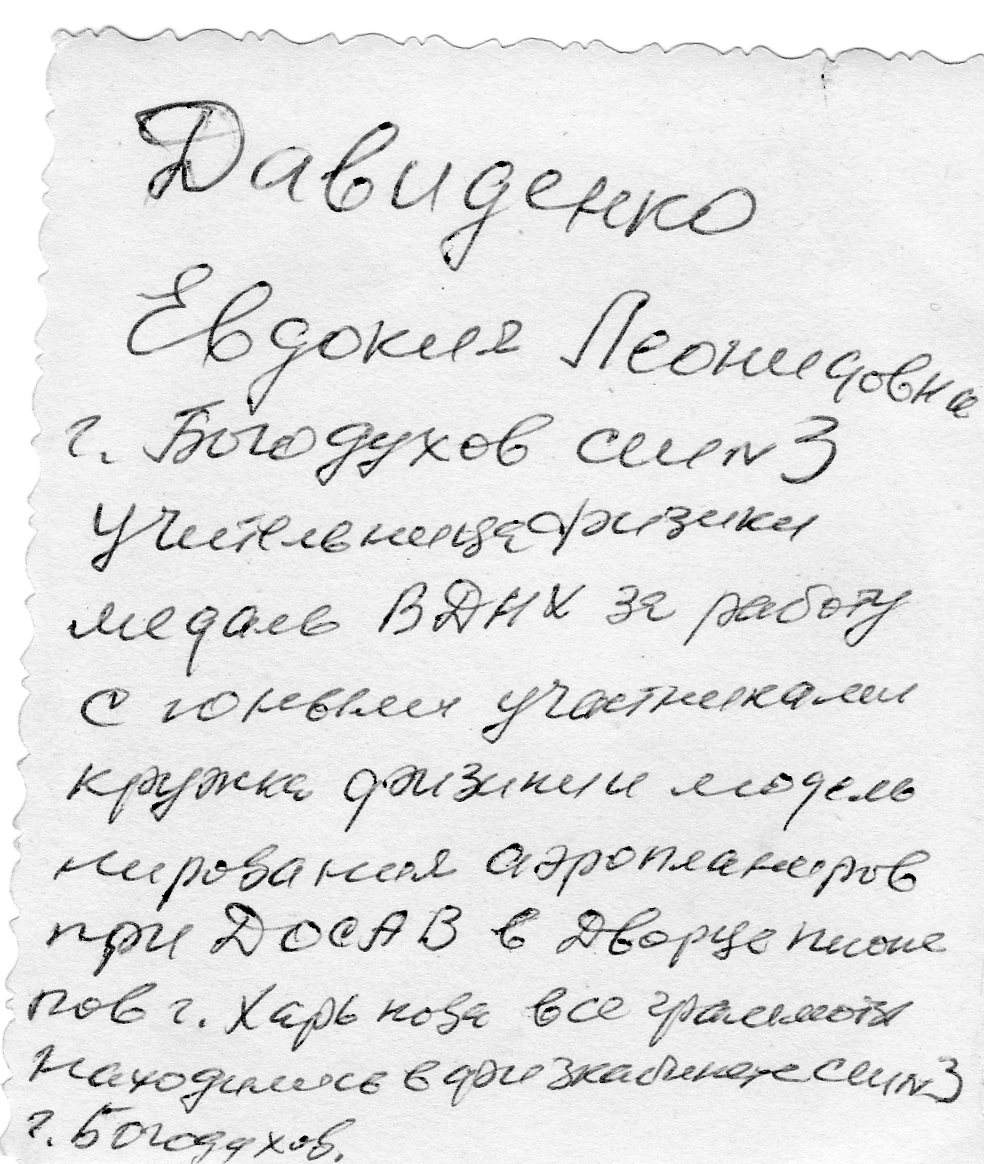 Давиденко
Евдокия Леонидовна
г. Богодухов сш N 3
учительница физики
медаль ВДНХ за работу
с юными участниками
кружка физики и модель
нирования аэропланеров
при ДОСАВ в Дворце пионе
ров г. Харькова все грамоты
находились в физкабинете сш N 3
г. Богодухов.